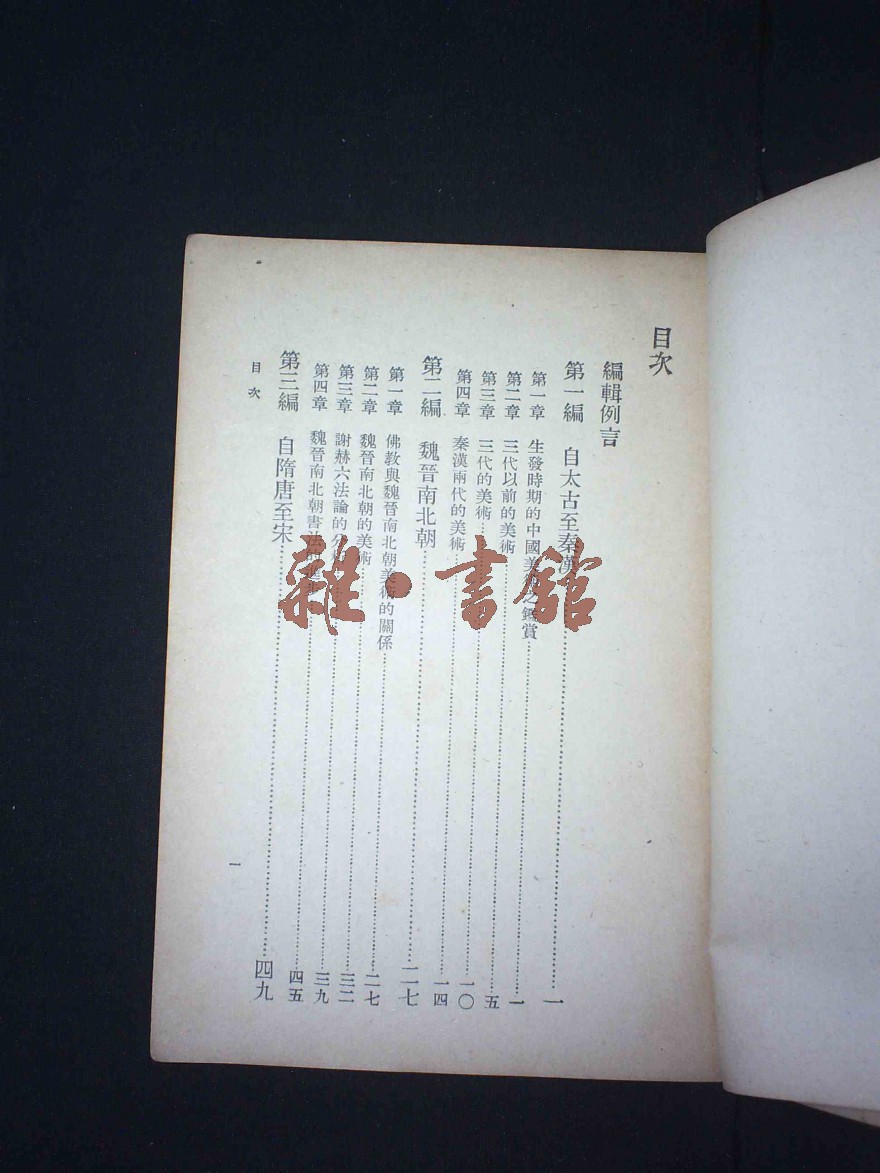 目次
編輯例言
第一編 自太古至秦漢 一
第一章 生發時期的中國美 之鑑賞 一
第二章 三代以前的美術 五
第三章 三代的美術 一〇
第四章 秦漢兩代的美術 一四
第二編 魏晉南北朝 二七
第一章 佛教與魏晉南北朝美術的關係 二七
第二章 魏晉南北朝的美術 三二
第三章 謝赫六法論的 三九
第四章 魏晉南北朝書法 四五
第三編 自隋唐至宋 四九
目次
一
雜·書館